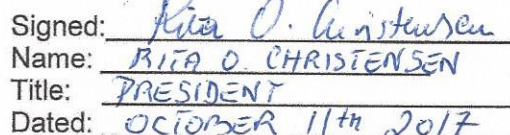 Signed: Rita O. Christensen
Name: RITA O. CHRISTENSEN
Title: PRESIDENT
Dated: OCTOBER 11th 2017